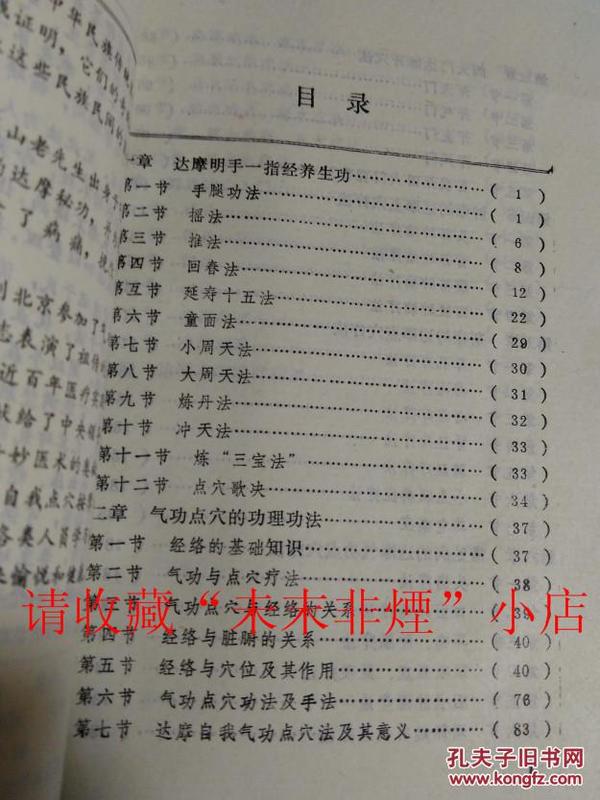 中华民族传
证明，它们的
这些民族民间的
山老先生出身
达摩秘功，
了病痛，
到北京参加了
志表演了祖传
近百年医疗实
献给了中央
妙医术的
自我点穴按
各类人员学
愉悦和健
目录
一章 达摩明手一指经养生功…………………( 1 )
第一节 手腿功法…………………( 1 )
第二节 摇法…………………( 6 )
第三节 推法…………………( 8 )
第四节 回春法…………………( 12 )
第五节 延寿十五法…………………( 22 )
第六节 童面法…………………( 29 )
第七节 小周天法…………………( 30 )
第八节 大周天法…………………( 31 )
第九节 炼丹法…………………( 32 )
第十节 冲天法…………………( 33 )
第十一节 炼“三宝法”…………………( 33 )
第十二节 点穴歌决…………………( 34 )
二章 气功点穴的功理功法…………………( 37 )
第一节 经络的基础知识…………………( 37 )
第二节 气功与点穴疗法…………………( 38 )
第三节 气功点穴与经络的关系…………………( 39 )
请收藏“未来非煙”小店
第四节 经络与脏腑的关系…………………( 40 )
第五节 经络与穴位及其作用…………………( 40 )
第六节 气功点穴功法及手法…………………( 76 )
第七节 达摩自我气功点穴法及其意义…………………( 83 )
1
孔夫子旧书网
www.kongfz.com